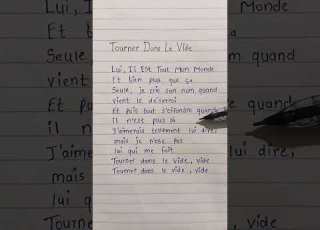 Tourner Dans Le Vide
Lui, Il Est Tout Mon Monde
Et bien plus que ça
Seule, je crie son nom quand
vient le désarroi
Et puis tout s'effondre quand
il n'est plus là
J'aimerais tellement lui dire
mais je n'ose pas
lui qui me fait
Tourner dans le vide, vide
Tourner dans le vide, vide